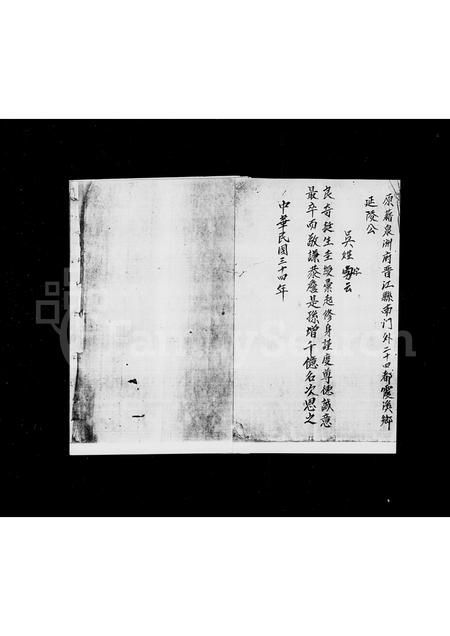 原籍泉洲府晋江縣南门外二十四都霞溪鄉
延陵公
吳姓
云
良奇 生至 彙起修身謹度尊德誠意
最卒而敬謙恭 是孫增千億名次思之
中華民國三十四年
FamilySearch